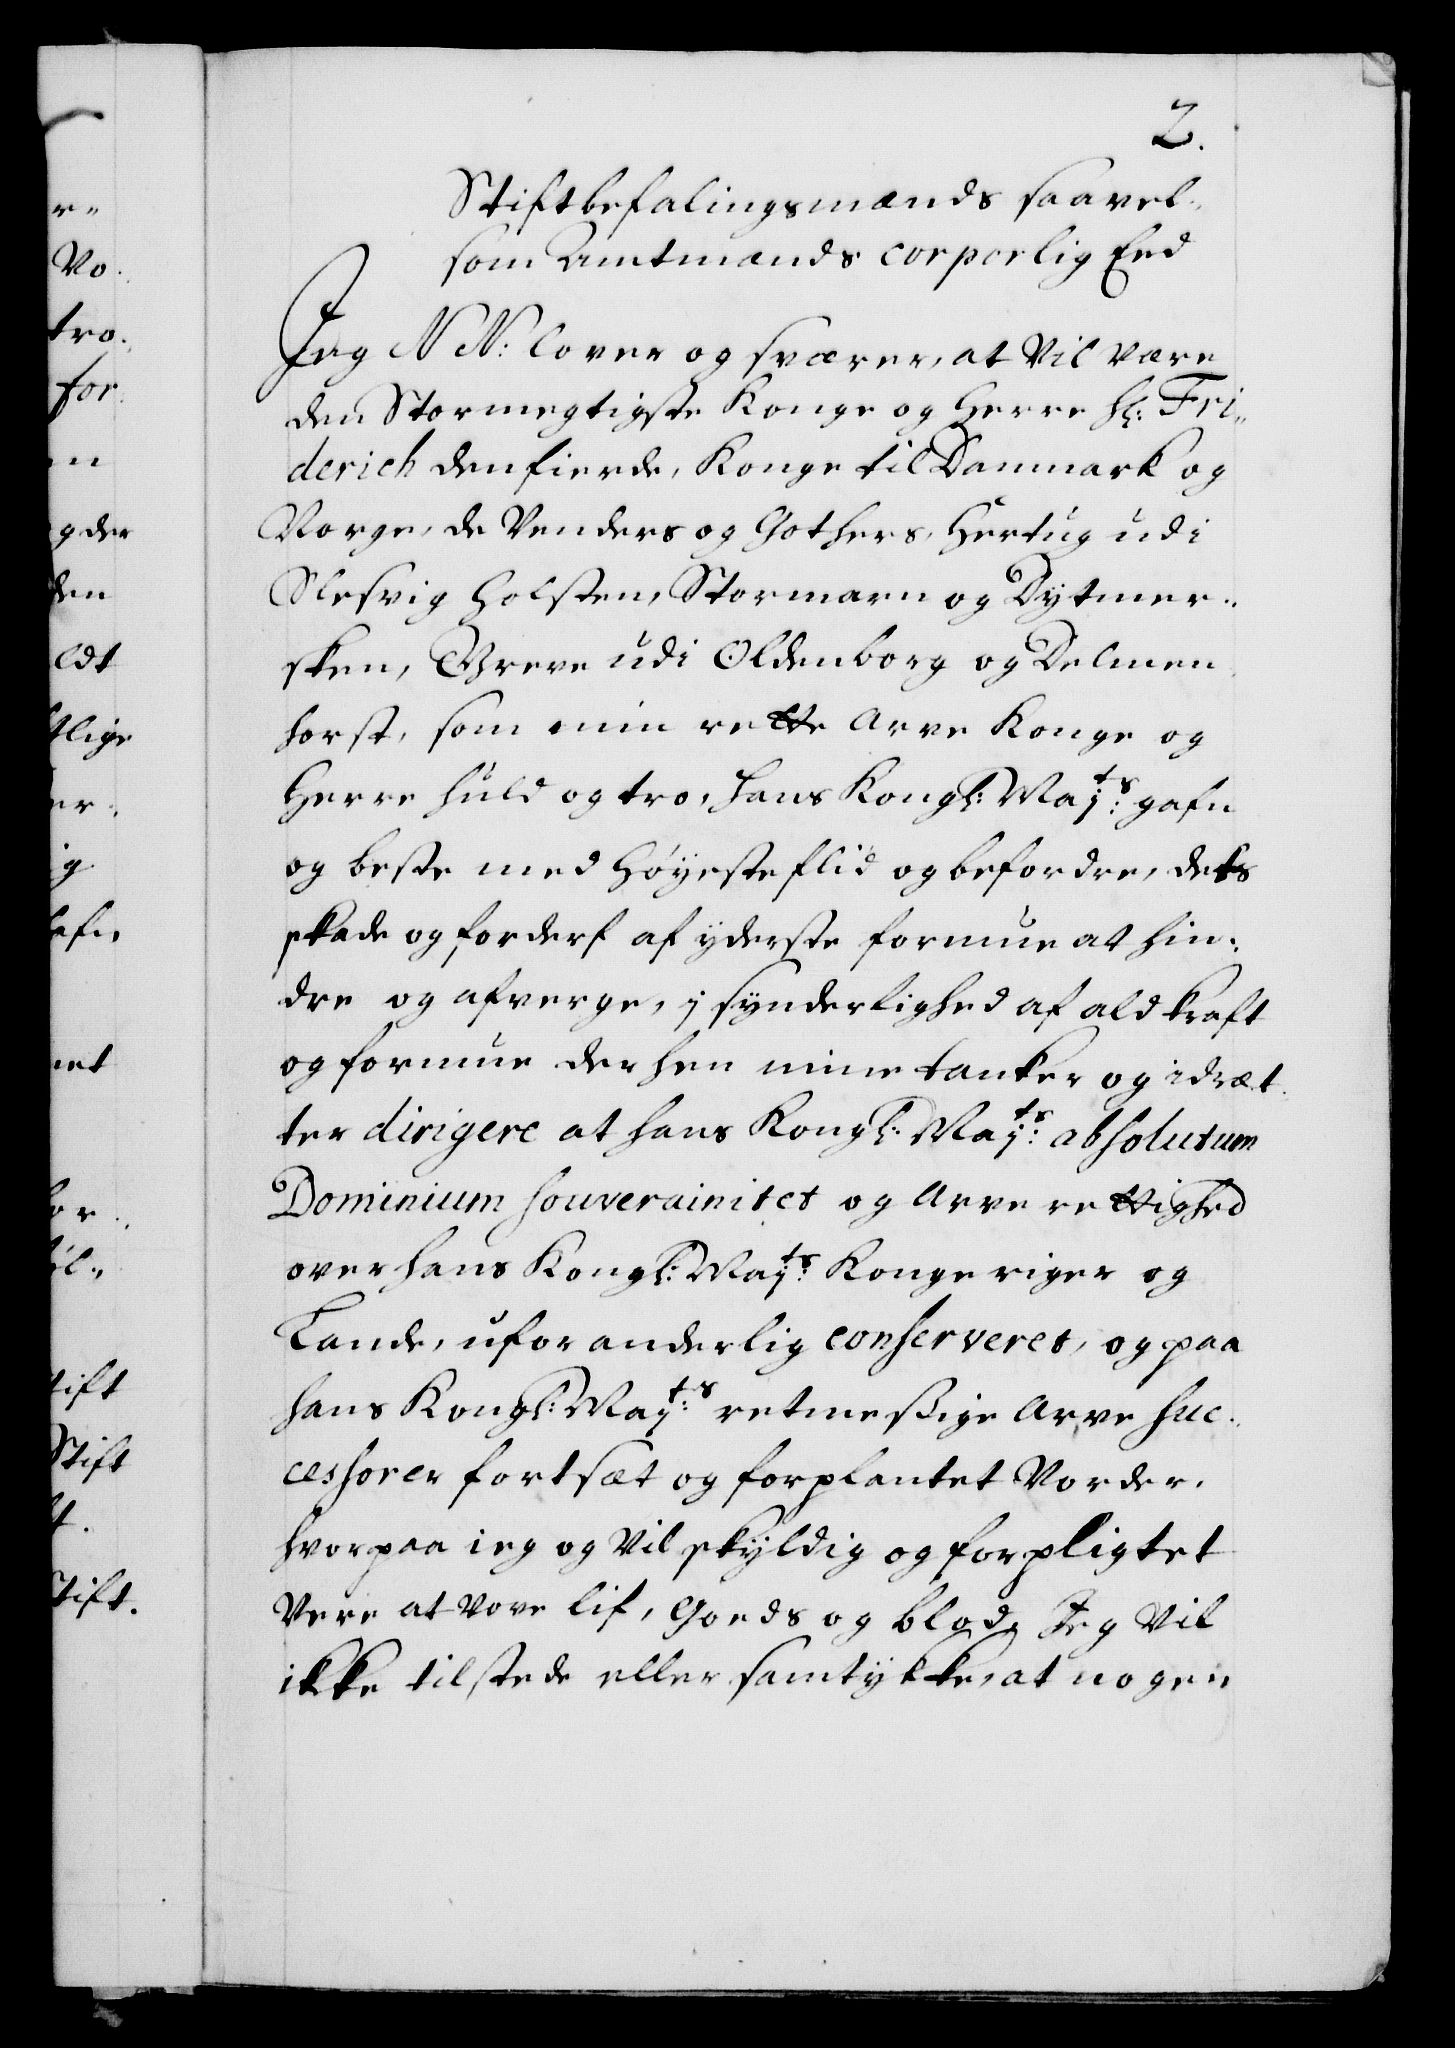 2.
Stiftbefalingsmænds saavel„
som Amtmænds corporlig Eed
Jeg N N: lover og sværer, at Vil være
den Stormegtigste Konge og Herre H: Fri„
derich den fierde, Konge til Danmark og
Norge, de Venders og Gothers, Hertug udi
Slesvig Holsten, Stormarn og Dytmer„
sken, Greve udi Oldenborg og Delmen„
horst, som min rette Arve Konge og
Herre huld og tro, hans Kongl: Mayts: gafn
og beste med Høyeste flid og befordre, dets
skade og forderf af yderste formue at hin„
dre og afverge, j synderlighed af ald kraft
og formue der hen mine tanker og idræt„
ter dirigere at hans Kongl: Mayts: absolutum
Dominium souverainitet og Arve rettighed
over hans Kongl: Mayts: Konge riger og
Lande, uforanderlig conserveret, og paa
hans Kongl: Mayts: retmessige Arve suc„
cessorer fortsæt og forplantet Vorder,
hvorpaa ieg og Vil skyldig og forpligtet
Vere at vove lif, Goeds og blod, Jeg Vil
ikke tilstede eller samtykke, at nogen
r„
Vo„
tro„
for„
en
gder
den
ldt
tlige
er„
ig
afn
net
or„
øl„
tift
Stift
t.
tift.